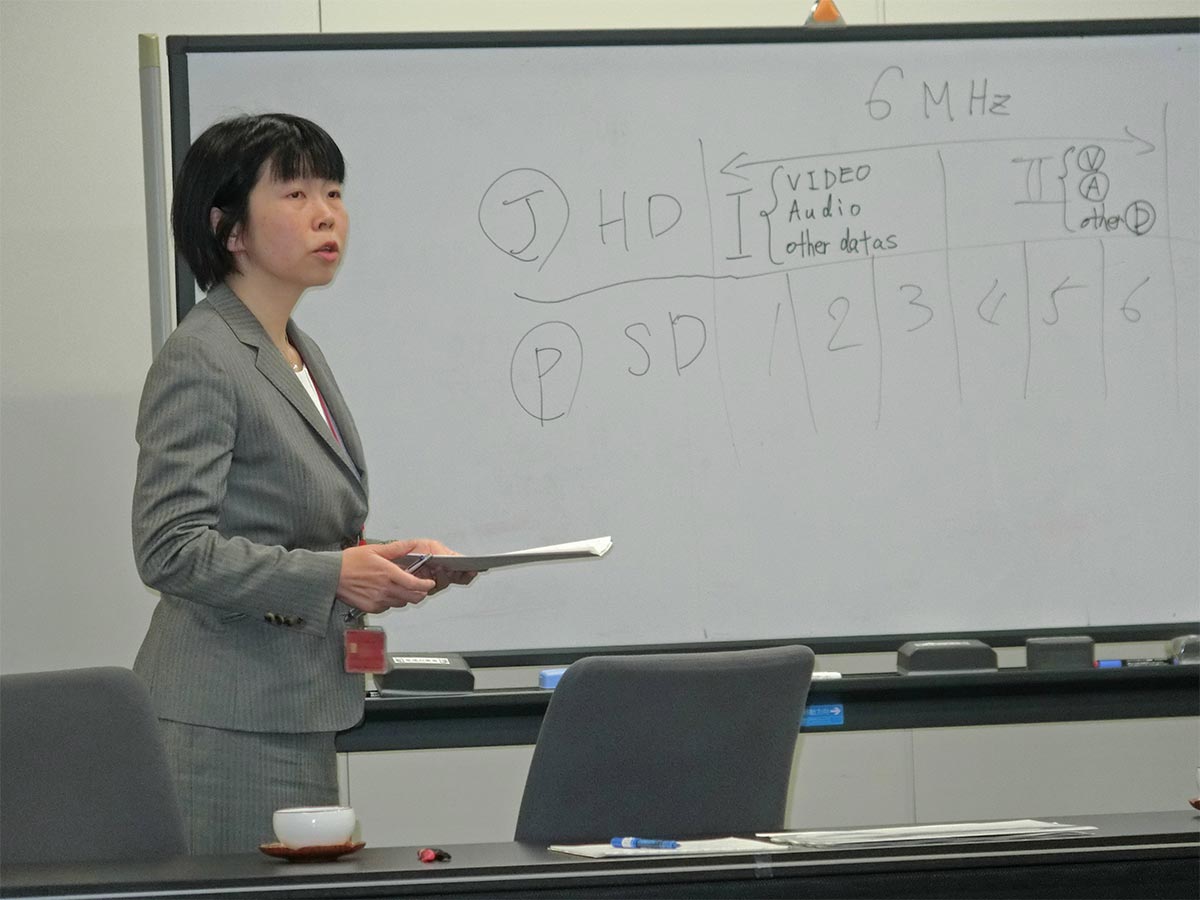 6 MHz
J HD I { VIDEO
Audio
other datas
II { V
A
other D
P SD 1 2 3 4 5 6